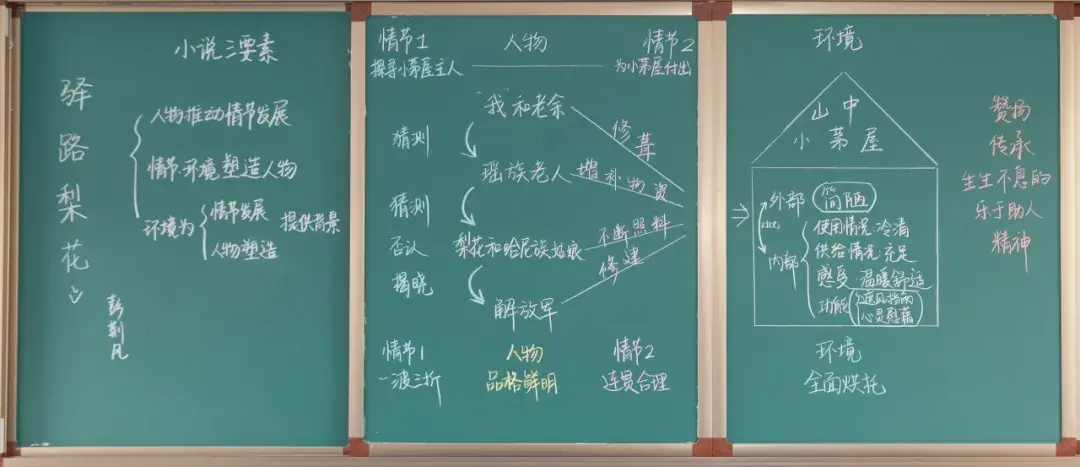 驿路梨花
彭荆凡
小说三要素
人物推动情节发展
情节·环境塑造人物
环境为
情节发展
人物塑造
提供背景
情节1
人物
情节2
探寻小茅屋主人
为小茅屋付出
"我"和老余
修葺
猜测
瑶族老人
增补物资
猜测
否认
梨花和哈尼族姑娘
不断照料
揭晓
修建
解放军
情节1
人物
情节2
一波三折
品格鲜明
连贯合理
环境
山中
小茅屋
外部
简陋
对比
内部
使用情况·冷清
供给情况·充足
感受 温暖舒适
功能
遮风挡雨
心灵慰藉
环境
全面烘托
赞扬
传承
生生不息的
乐于助人
精神